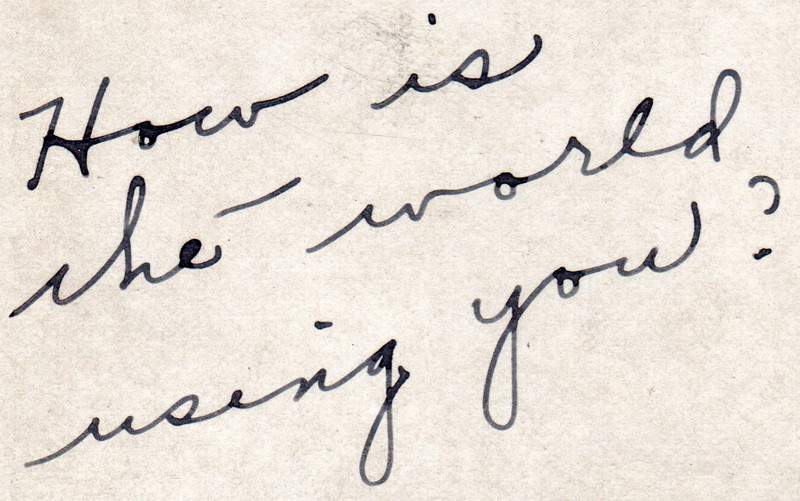 How is
the world
using you?